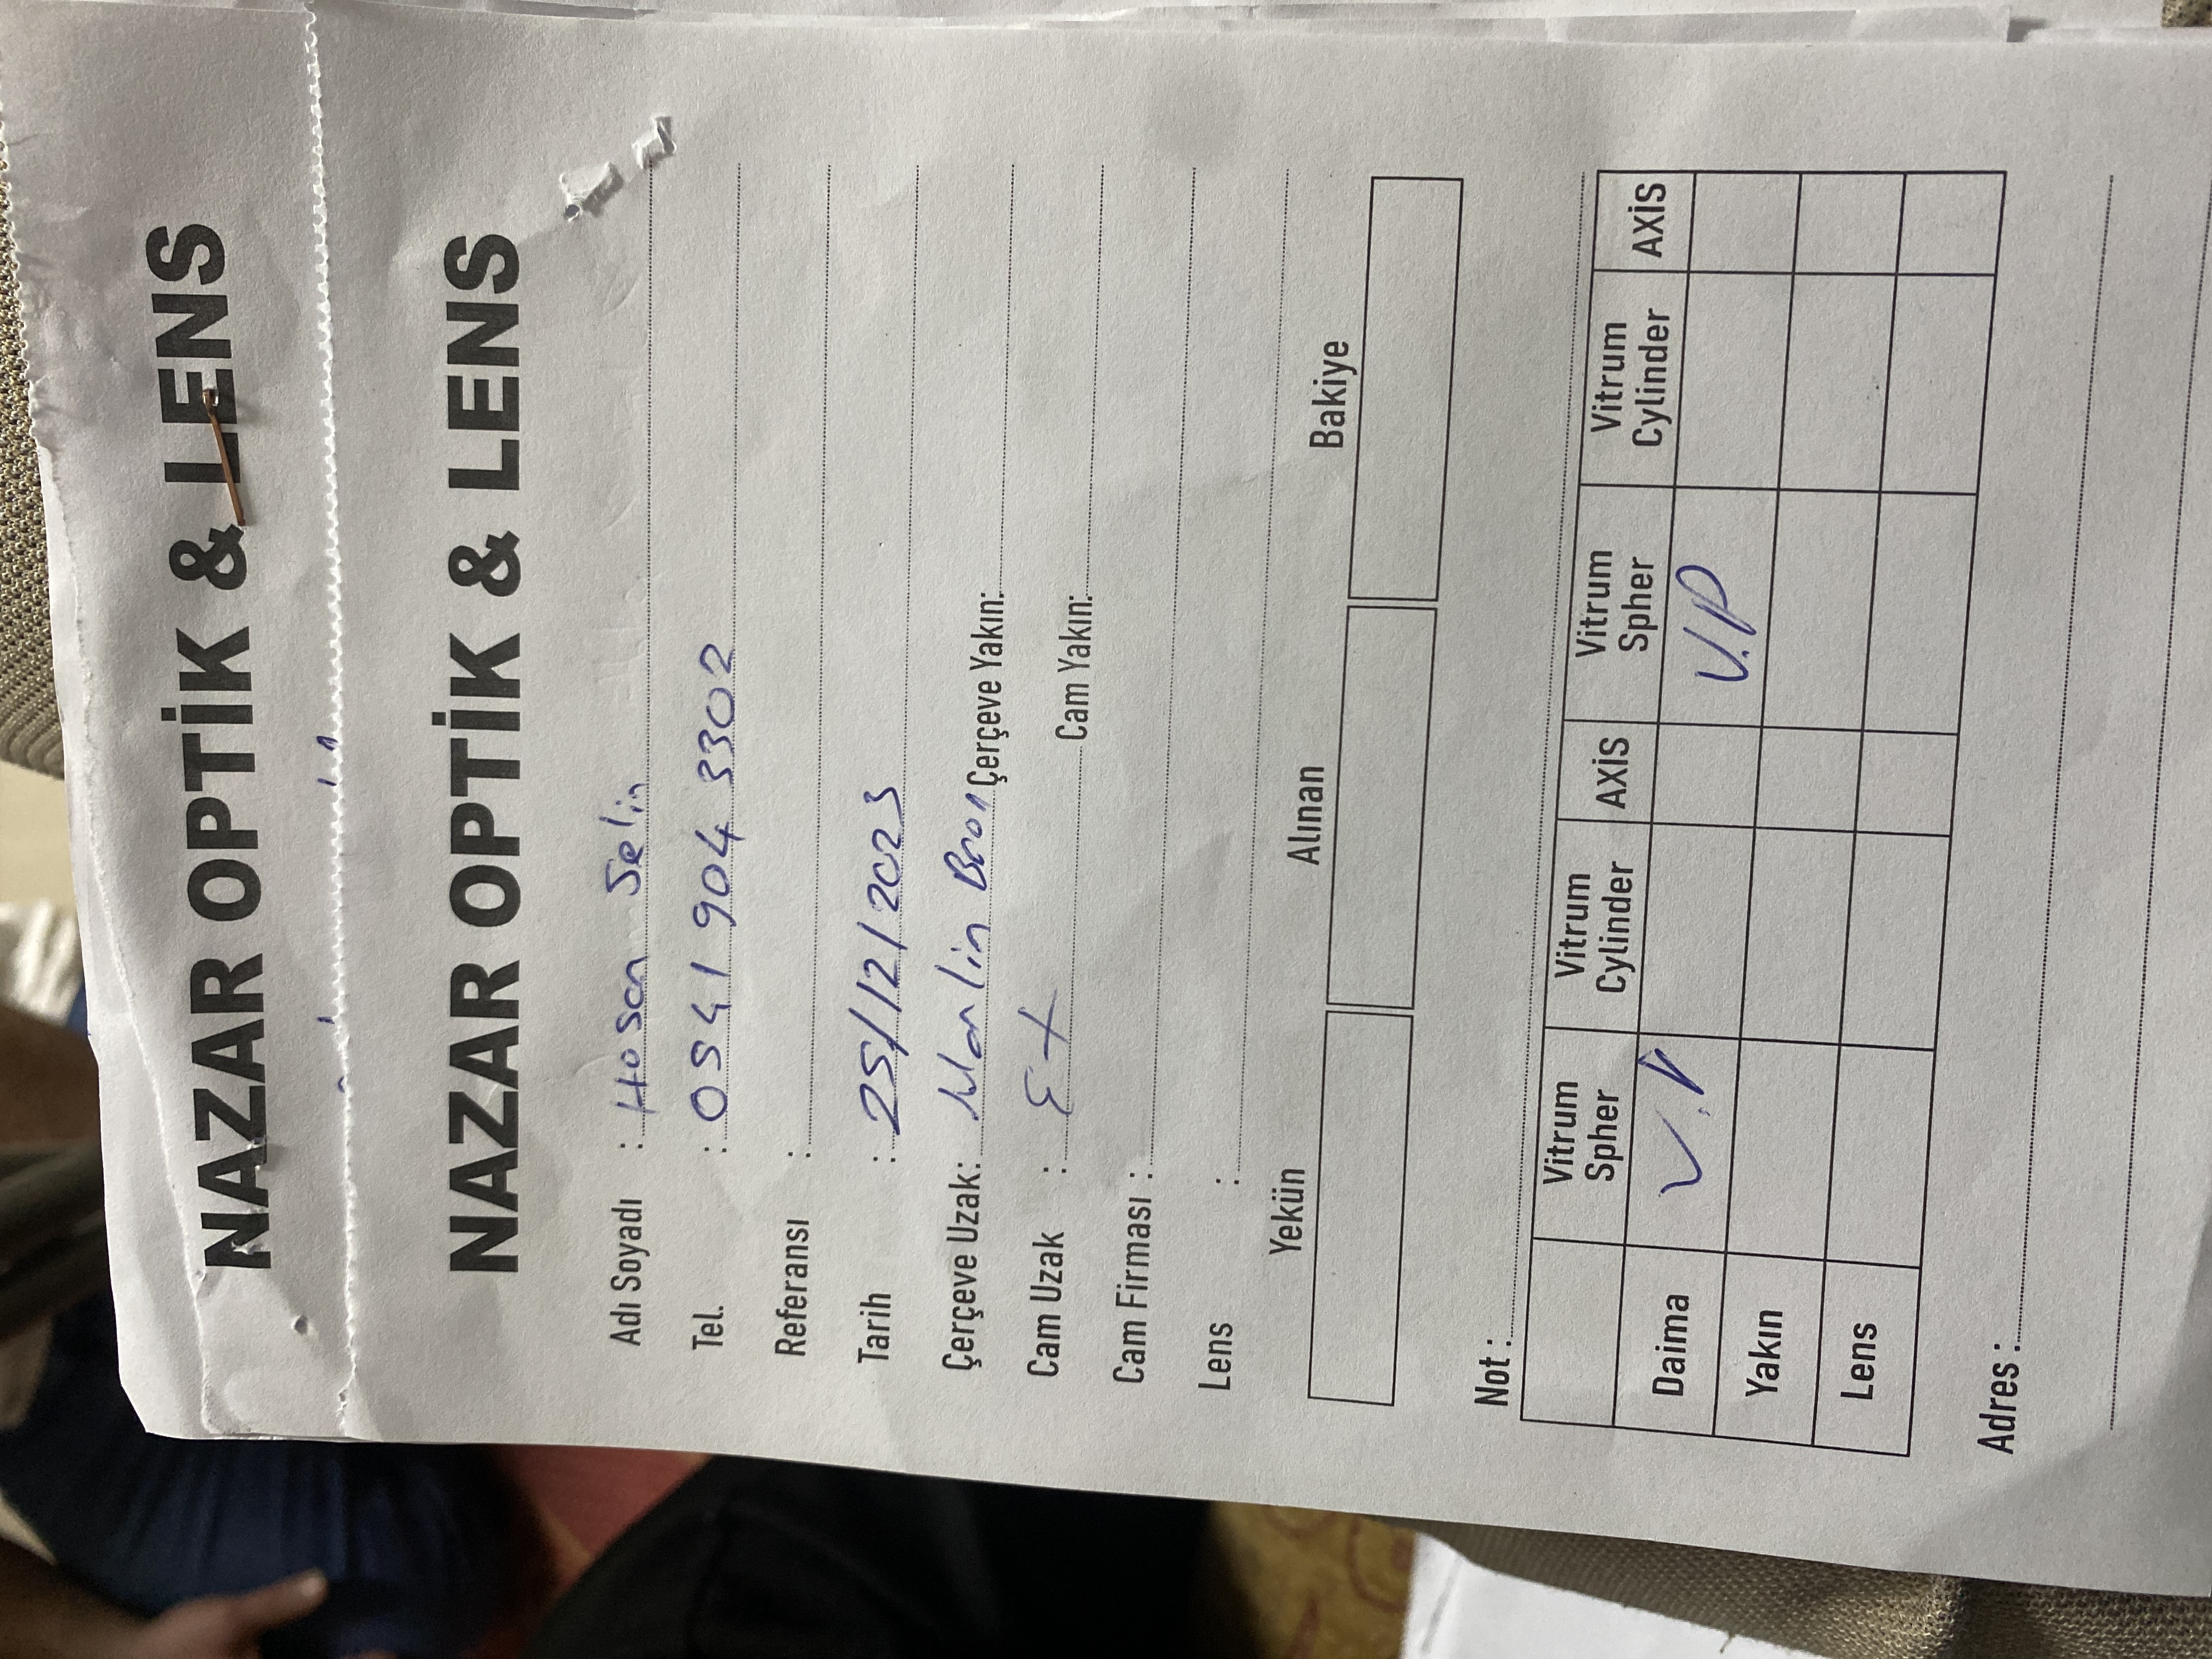 NAZAR OPTİK & LENS
NAZAR OPTİK & LENS
Adı Soyadı : Hosan Selin
Tel. : 0541 904 3302
Referansı :
Tarih : 25/12/2023
Çerçeve Uzak: Marlin Bron Çerçeve Yakın:
Cam Uzak : Cam Yakın:
Cam Firması :
Lens :
Yekün Alınan Bakiye
Not :
Vitrum Spher Vitrum Cylinder AXİS Vitrum Spher Vitrum Cylinder AXİS
Daima V.P V.P
Yakın
Lens
Adres :